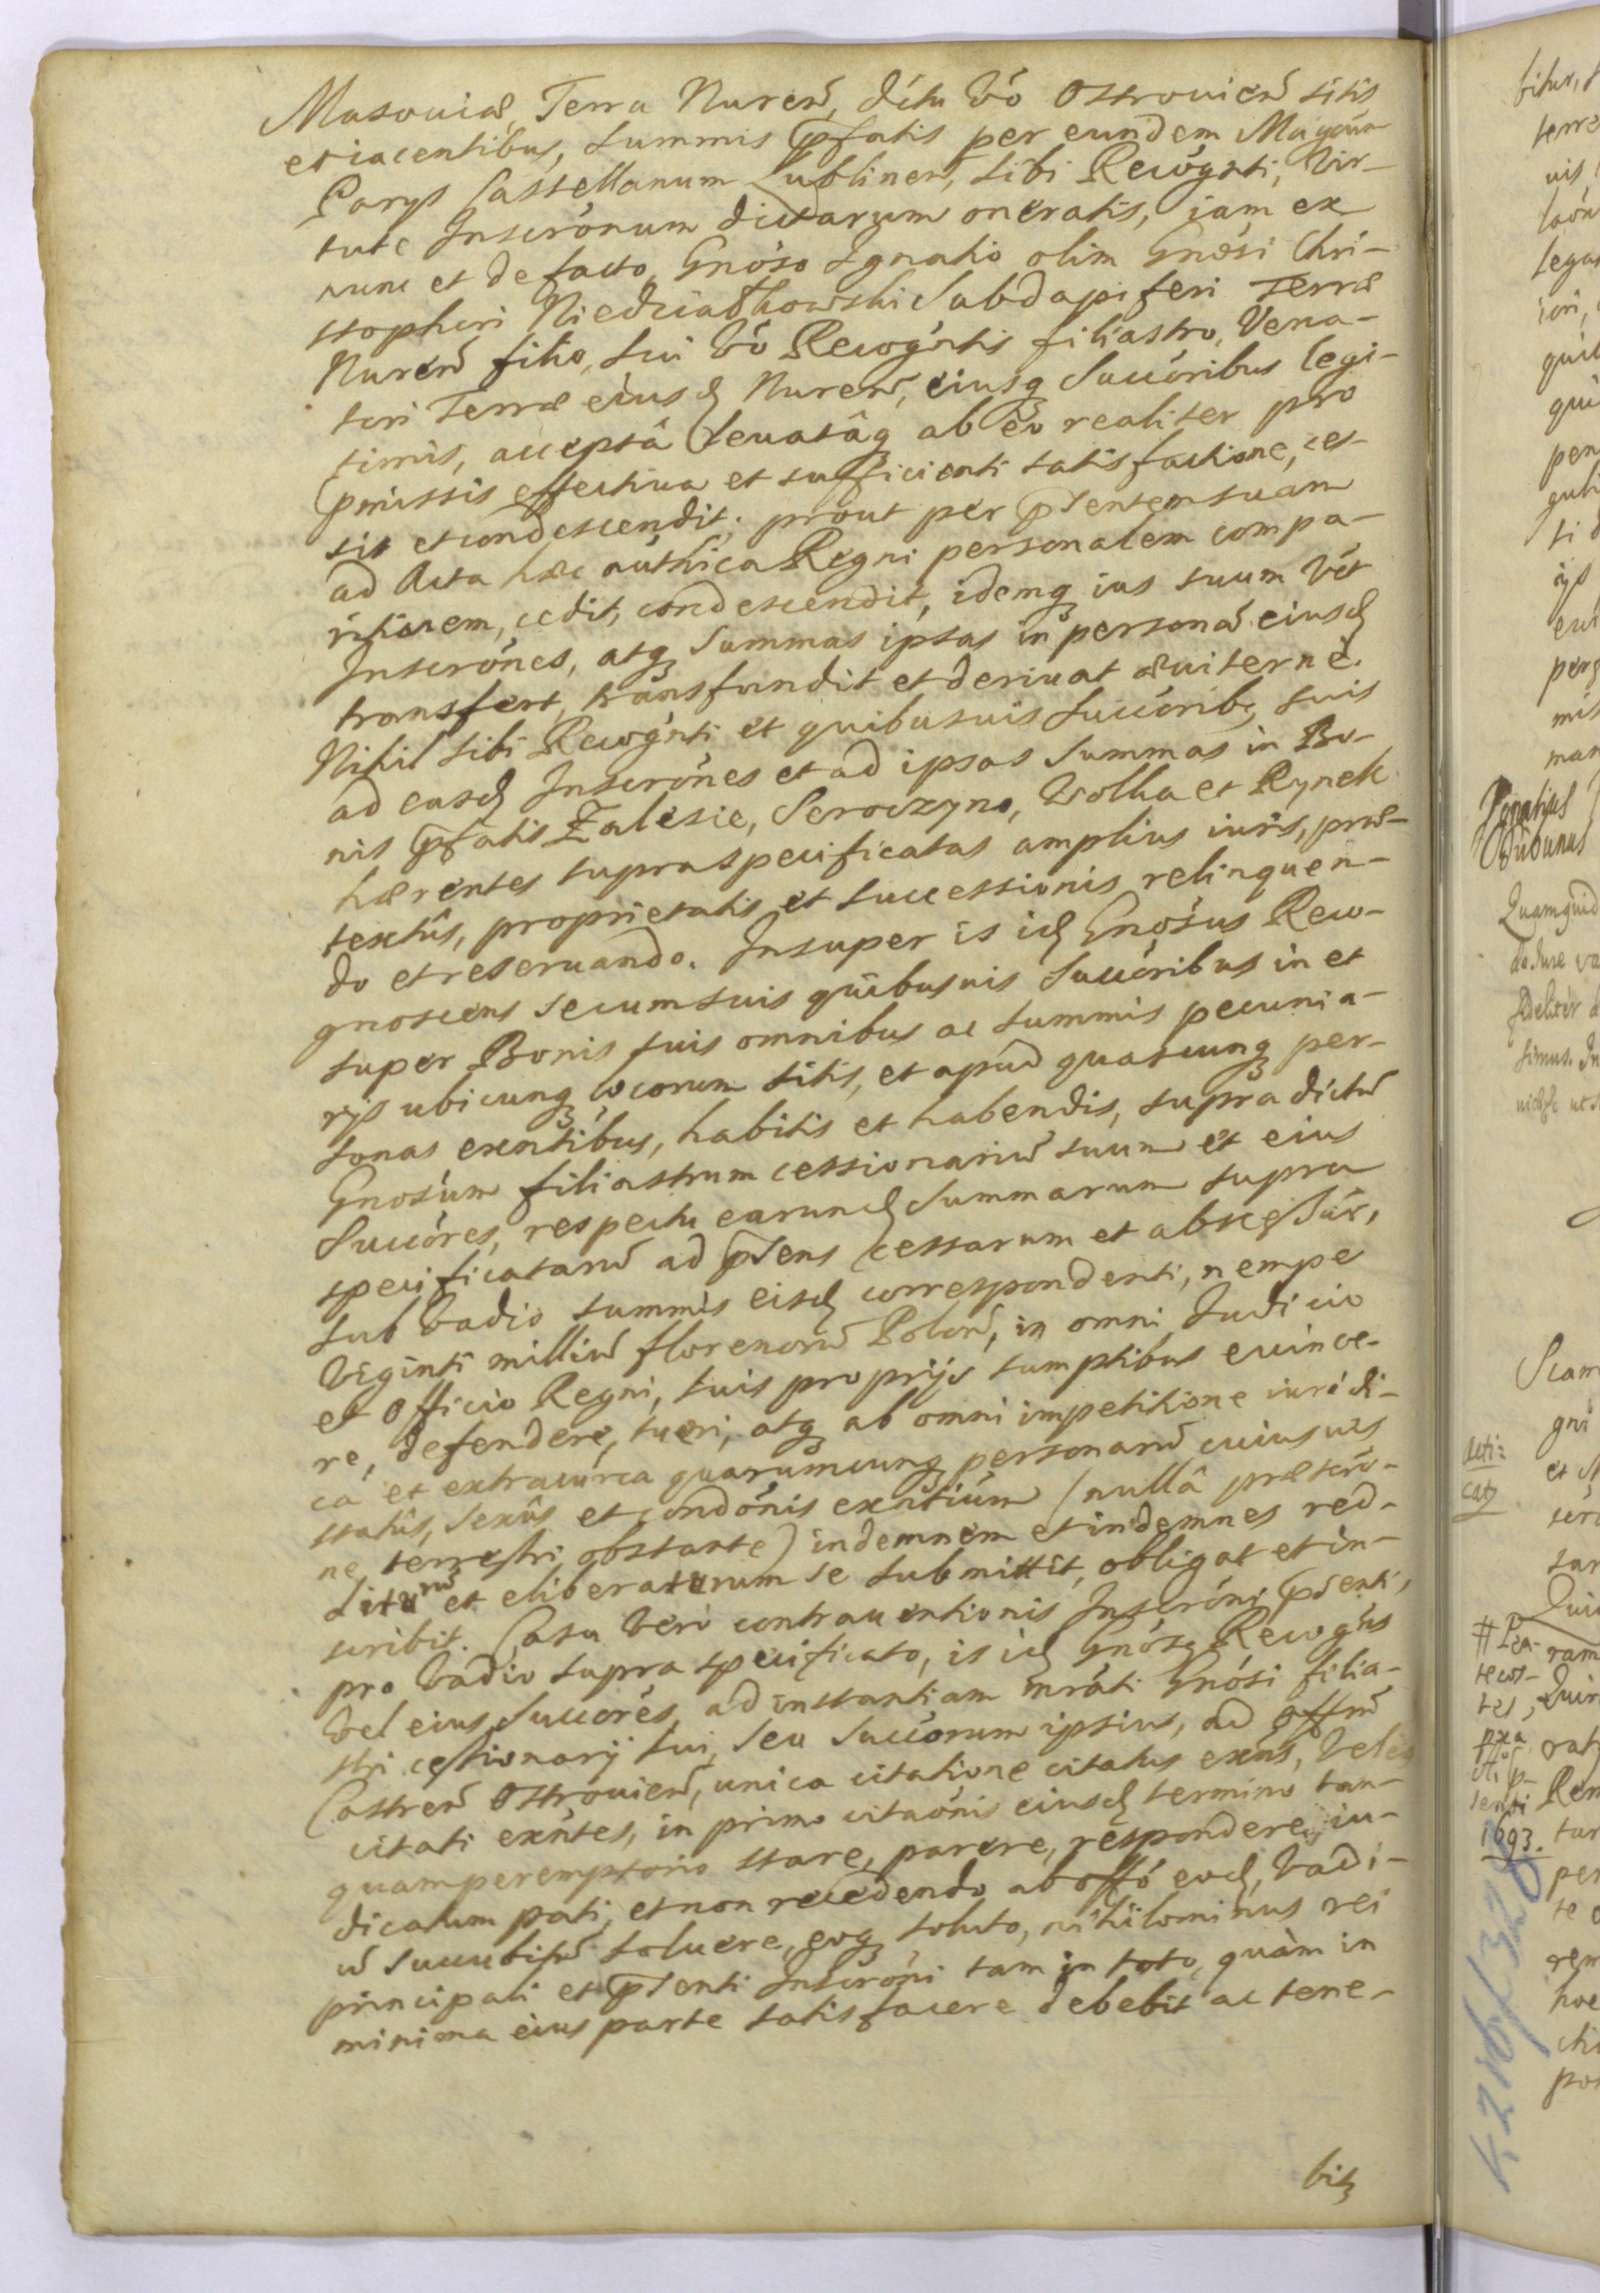 Masouiæ, Terra Nureñ, dictu Vo Ostrouieñ sitis
et iacentibus, summis pfatis per eundem Magcum
Parys Castellanum Lublineñ, sibi Recognti, Vir-
tute Inscronum dictarum oneratis, iam ex
nunc et de facto, Gnoso Ignatio olim Gnosi Chri-
stopheri Niedzialkowski Subdapiferi Terræ
Nureñ filio, sui Vo Recogntis filiastro, Vena-
tori Terræ eiusd Nureñ, eiusq Succoribus legi-
timis, acceptâ leuatâq ab eo realiter pro
pmissis effectiua et sufficienti satisfactione, ces-
sit et condescendit; prout per psentem suam
ad Acta hæc authica Regni personalem compa-
ritionem, cedit, condescendit, idemq ius suum Vet
Inscrones, atq Summas ipsas in persona eiusd
transfert, transfundit et deriuat æuiterne.
Nihil sibi Recognti et quibusuis Succorib, suis
ad easd Inscrones et ad ipsas Summas in Bo-
nis pfatis Zalesie, Seroczyno, Wolka et Rynek
hærentes supraspecificatas amplius iuris, præ-
textûs, proprietatis et successionis relinquen-
do et reseruando. Insuper is id Gnosus Reco-
gnoscens secum suis quibusuis Succoribus in et
super Bonis suis omnibus ac summis pecunia-
rijs ubicunq locorum sitis, et apud quascunq per-
sonas exntibus, habitis et habendis, supra dictu
Gnosum filiastrum cessionariu suum et eius
Succores, respectu earund Summarum supra
specificataru ad psens cessarum et
sub Vadio summis eisd correspondenti, nempe
Viginti milliu florenoru Poloñ, in omni Judicio
et Officio Regni, suis proprijs sumptibus euince-
re, defendere, tueri, atq ab omni impetitione iuridi-
ca et extraiurca quarumcunq personaru cuiusuis
statûs, sexûs et condonis exntium (nullâ præscro-
ne terrestri obstante) indemnem et indemnes red-
dituru et eliberaturum se submittit, obligat et in-
scribit. Casu Vero contrauentionis Inscroni psenti,
pro Vadio supra specificato, is id Gnosq Recogns
Vel eius Succores, ad instantiam mrati Gnosi filia-
stri cessionarij sui, seu Succorum ipsius, ad offm
Castreñ Ostrouieñ, unica citatione citatus exns, Vel
citati exntes, in primo citaonis eiusd termino tan-
quam peremptorio stare, parere, respondere, iu-
dicatum pati, et non recedendo ab offo eod, Vadi-
u succubitu soluere, eoq soluto, nihilominus rei
principali et psenti Inscroni tam in toto, quàm in
minima eius parte satisfacere debebit ac tene-
bit
Quamquid
acti-
cat
1693.